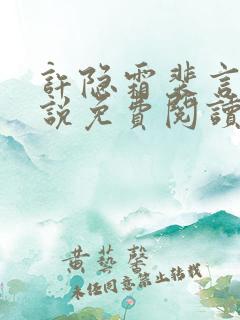 許隐霜裴言
說免費閱讀
黄藝馨
未经同意禁止转载